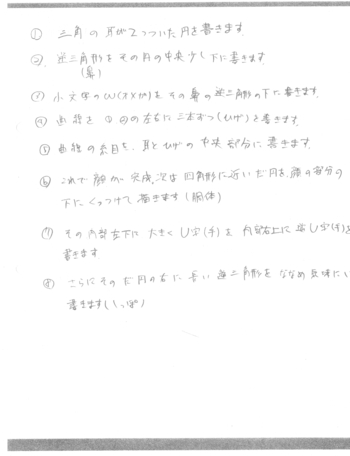 ① 三角の耳が2つついた円を書きます
② 逆三角形をその円の中央少し下に書きます
(鼻)
③ 小文字のω(オメガ)をその鼻の逆三角形の下に書きます
④ 曲線を①の円の左右に三本ずつ(ひげ)を書きます
⑤ 曲線の糸目を、耳とひげの中央部分に書きます
⑥ これで顔が完成、次は四角形に近いだ円を、顔の部分の
下にくっつけて描きます(胴体)
⑦ その内部左下に大きくU字(手)を 内部右上に逆U字(手)を
書きます
⑧ さらにそのだ円の右に長い逆三角形をななめ気味に
書きます(しっぽ)